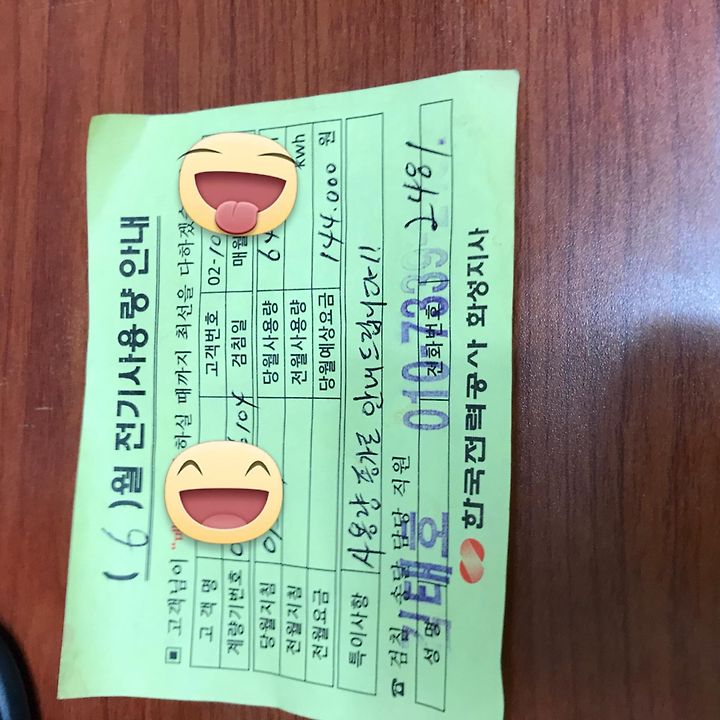 ( 6 )월 전기사용량 안내
■ 고객님이 하실 때까지 최선을 다하겠
고객명 고객번호 02-10
계량기번호 검침일 매월
당월지침 당월사용량 64
전월지침 전월사용량 kwh
전월요금 당월예상요금 144.000 원
특이사항 사용량 증가로 안내드립니다!!
☎ 검침 송달 담당 직원
성명 태호 전화번호 010-7339
한국전력공사 화성지사